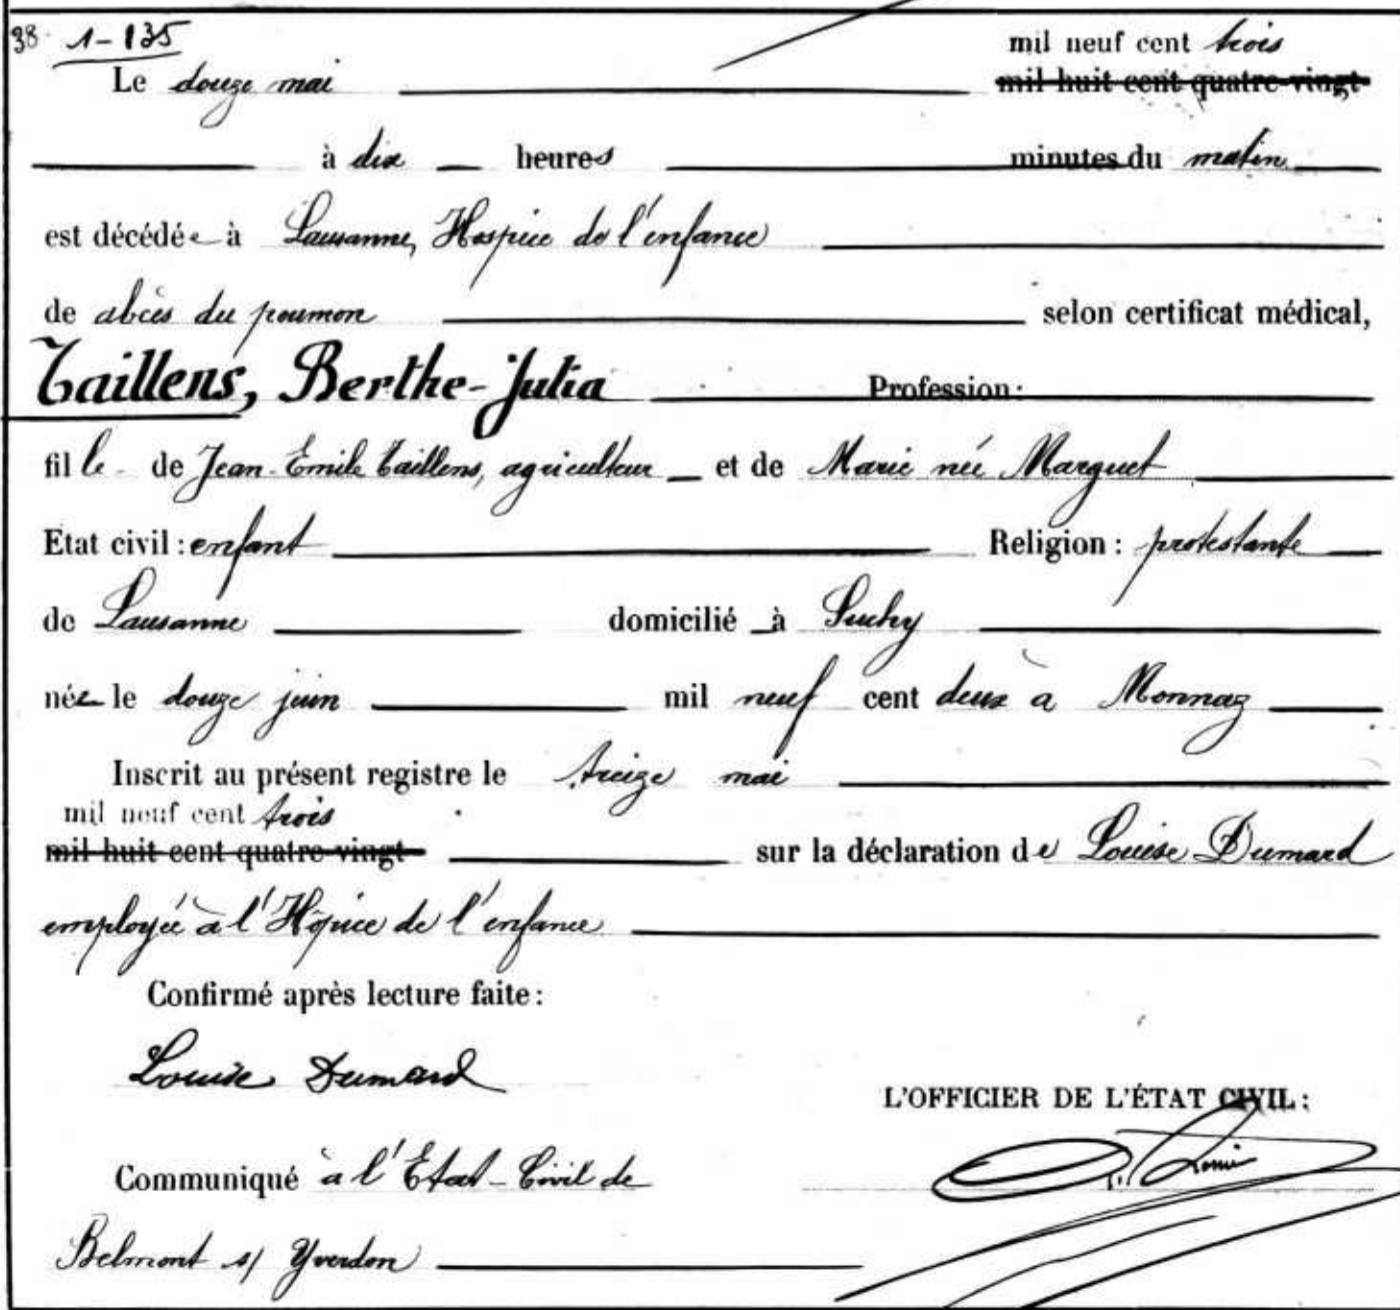 38. 1-135
mil neuf cent trois
Le douze mai mil huit cent quatre-vingt
à dix heures minutes du matin
est décédée à Lausanne, Hospice de l'enfance
de abcès du poumon selon certificat médical,
Taillens, Berthe-Julia Profession:
fille de Jean-Emile Taillens, agriculteur et de Marie née Marguet
Etat civil : enfant Religion : protestante
de Lausanne domicilié à Suchy
née le douze juin mil neuf cent deux à Monnaz
Inscrit au présent registre le treize mai
mil neuf cent trois
mil huit cent quatre-vingt sur la déclaration de Louise Dumard
employée à l'Hospice de l'enfance
Confirmé après lecture faite :
Louise Dumard
L'OFFICIER DE L'ÉTAT CIVIL :
Communiqué à l'Etat-Civil de
Belmont s/ Yverdon